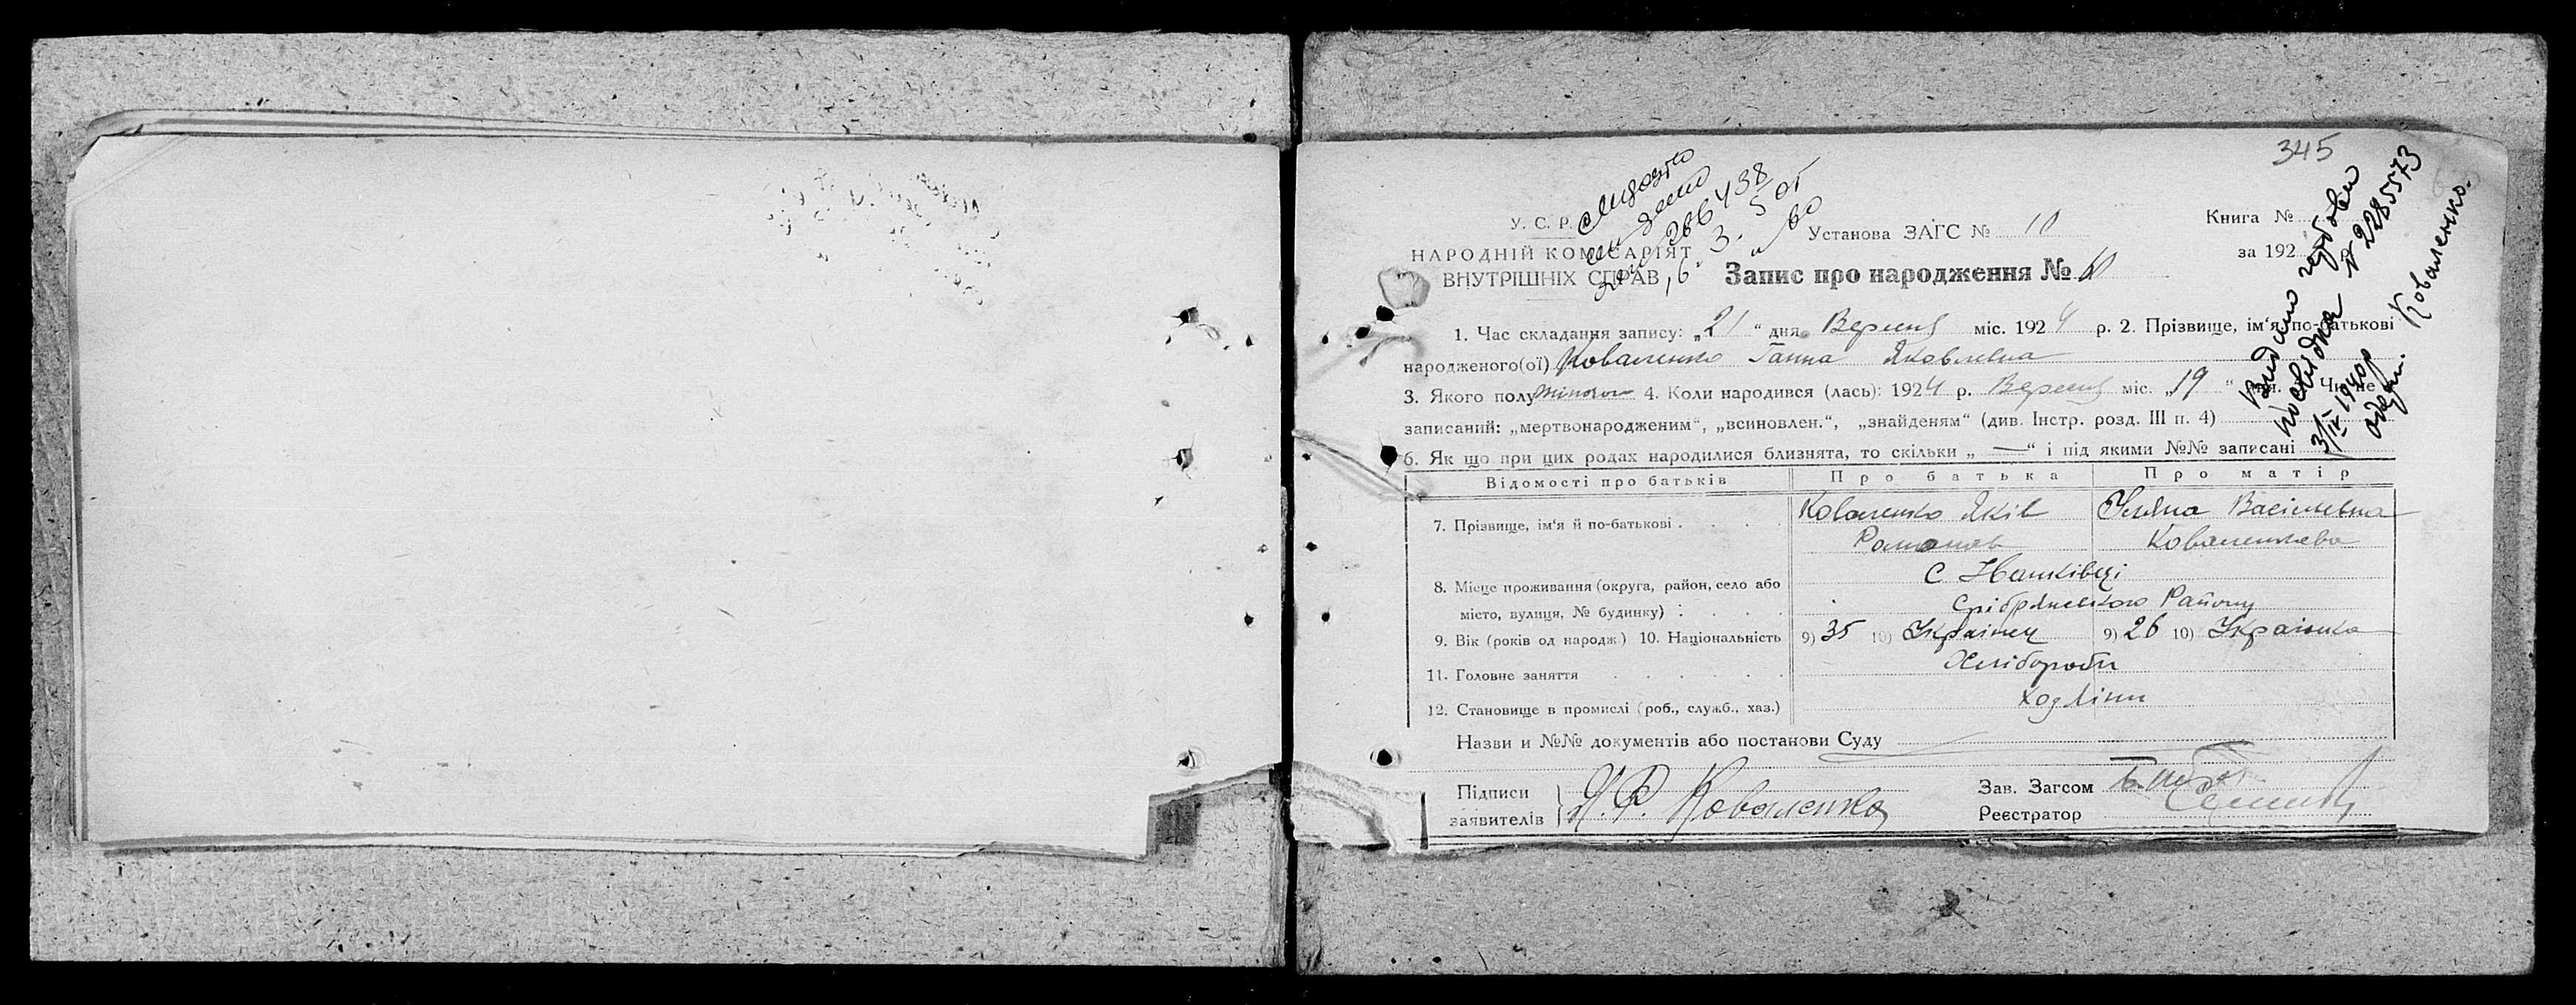 345
У. С. Р.
НАРОДНІЙ КОМІСАРІЯТ
ВНУТРІШНІХ СПРАВ
Установа ЗАГС № 10
Книга №
за 192 р.
Запис про народження № 60
Видано гербове
посвідка № 2285573
3/IV 1940р
одерж. Коваленко.
1. Час складання запису: „21“ дня Вересня міс. 1924 р. 2. Прізвище, ім'я по-батькові
народженого(ої) Коваленко Ганна Яковлевна
3. Якого полу жіночого 4. Коли народився (лась): 1924 р. Вересня міс. „19“ дня. 5. Чи не
записаний: „мертвонародженим“, „всиновлен.“, „знайденям“ (див. Інстр. розд. III п. 4)
6. Як що при цих родах народилися близнята, то скільки „ — “ і під якими №№ записані
Відомості про батьків Про батька Про матір
7. Прізвище, ім'я й по-батькові Коваленко Яків Уляна Васілевна
Романов Коваленкова
8. Місце проживання (округа, район, село або С
місто, вулиця, № будинку) Срібрянського Району
9. Вік (років од народж.) 10. Національність 9) 35 10) Українец 9) 26 10) Українка
11. Головне заняття Хлібороби
12. Становище в промислі (роб., служб., хаз.)
Назви и №№ документів або постанови Суду
Підписи
заявителів Я. Р. Коваленко
Зав. Загсом
Реєстратор